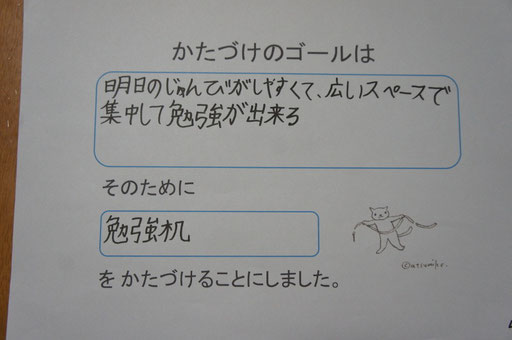 かたづけのゴールは
明日のじゅんびがしやすくて、広いスペースで
集中して勉強が出来る
そのために
勉強机
©atsumiko.
をかたづけることにしました。